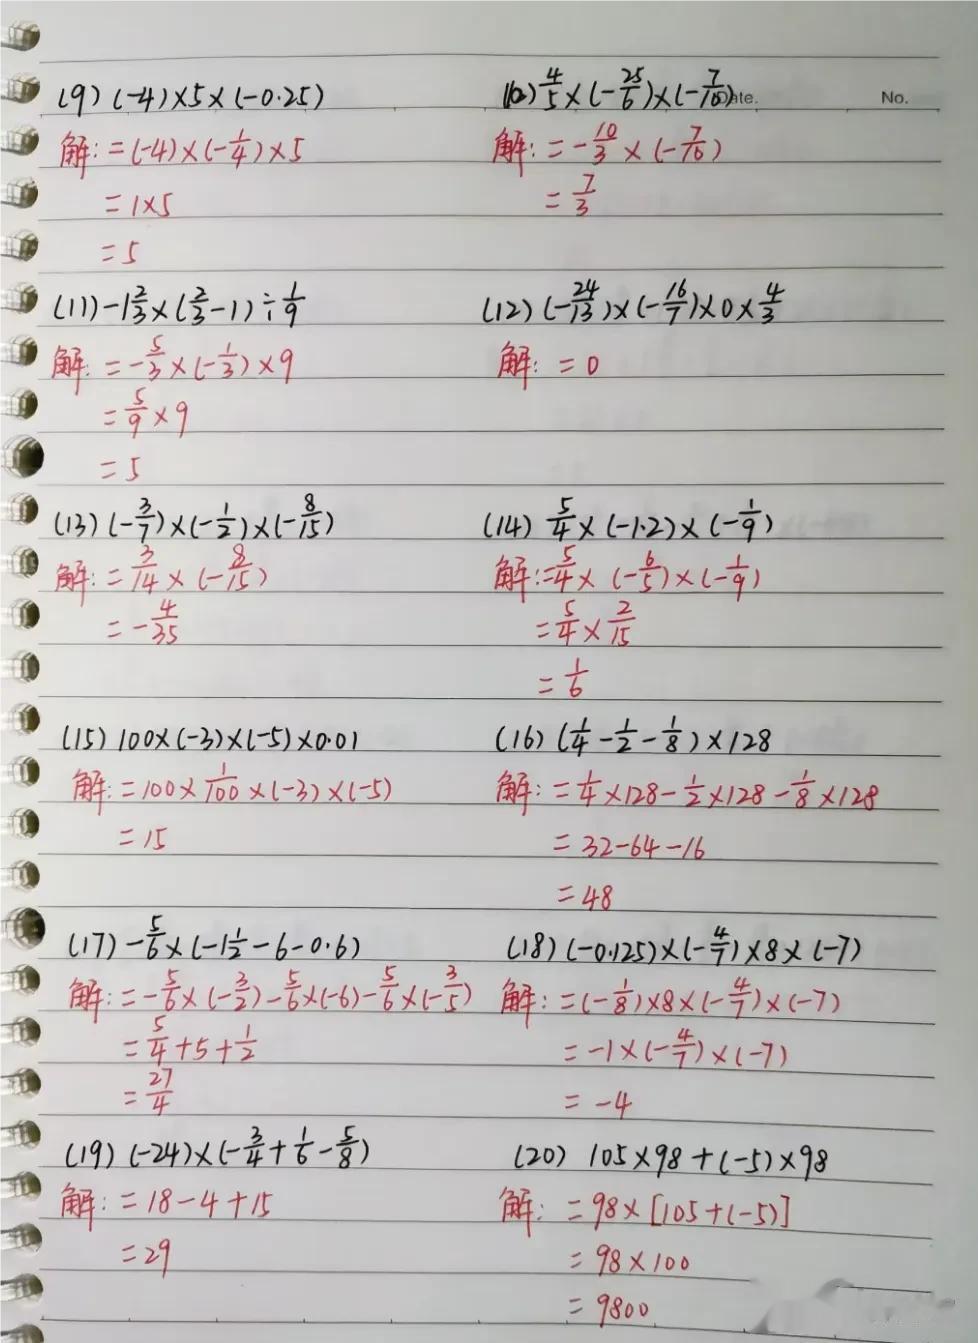 (9) (-4)×5×(-0.25)
解: =(-4)×(-1/4)×5
=1×5
=5
(10) 4/5×(-25/6)×(-7/10)
Date. No.
解: =-10/3×(-7/10)
=7/3
(11) -1 2/3×(2/3-1)÷1/9
解: =-5/3×(-1/3)×9
=5/9×9
=5
(12) (-24/13)×(-16/7)×0×4/3
解: =0
(13) (-3/7)×(-1/2)×(-8/15)
解: =3/14×(-8/15)
=-4/35
(14) 5/4×(-1.2)×(-1/9)
解:=5/4×(-6/5)×(-1/9)
=5/4×2/15
=1/6
(15) 100×(-3)×(-5)×0.01
解: =100×1/100×(-3)×(-5)
=15
(16) (1/4-1/2-1/8)×128
解: =1/4×128-1/2×128-1/8×128
=32-64-16
=48
(17) -5/6×(-1 1/2-6-0.6)
解: =-5/6×(-3/2)-5/6×(-6)-5/6×(-3/5)
=5/4+5+1/2
=27/4
(18) (-0.125)×(-4/7)×8×(-7)
解: =(-1/8)×8×(-4/7)×(-7)
=-1×(-4/7)×(-7)
=-4
(19) (-24)×(-3/4+1/6-5/8)
解: =18-4+15
=29
(20) 105×98+(-5)×98
解: =98×[105+(-5)]
=98×100
=9800